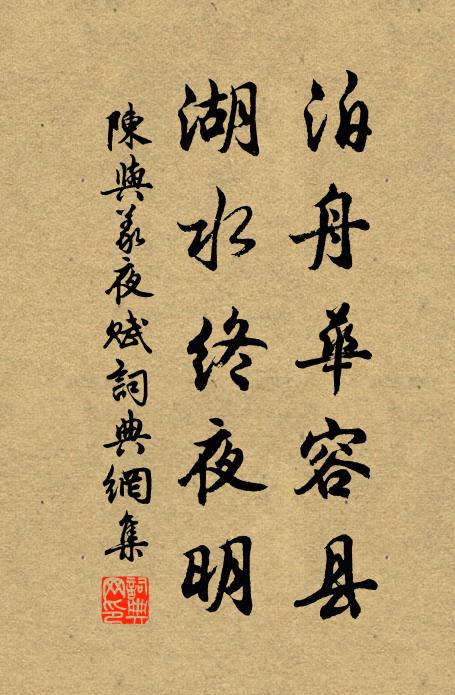 泊舟華容县
湖水终夜明
陳與义夜赋詞典網集
詞典网印